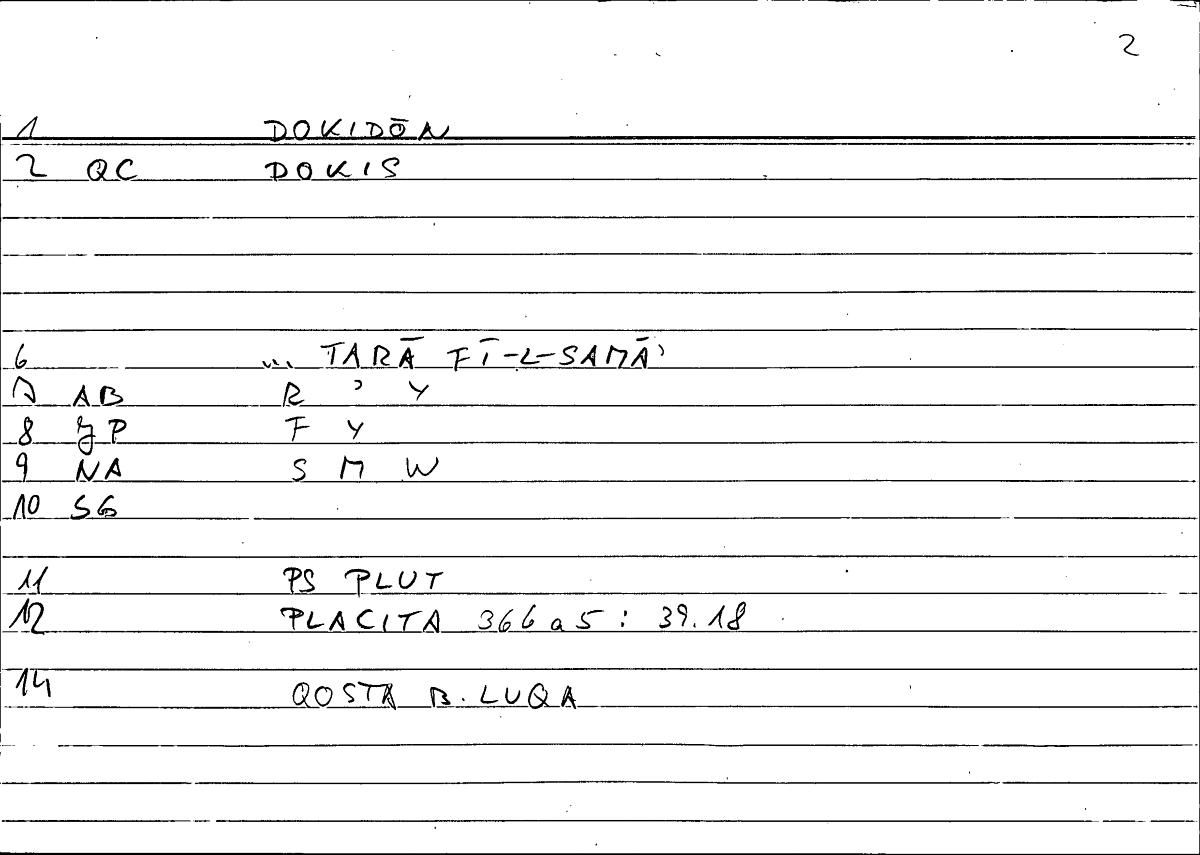 2
1 DOKIDŌN
2 QC DOKIS
6 ... TARĀ FĪ-L-SAMĀʾ
7 AB R ʾ Y
8 JP F Y
9 NA S M W
10 SG
11 PS PLUT
12 PLACITA 366a5 : 39.18
14 QOSTA B. LUQA